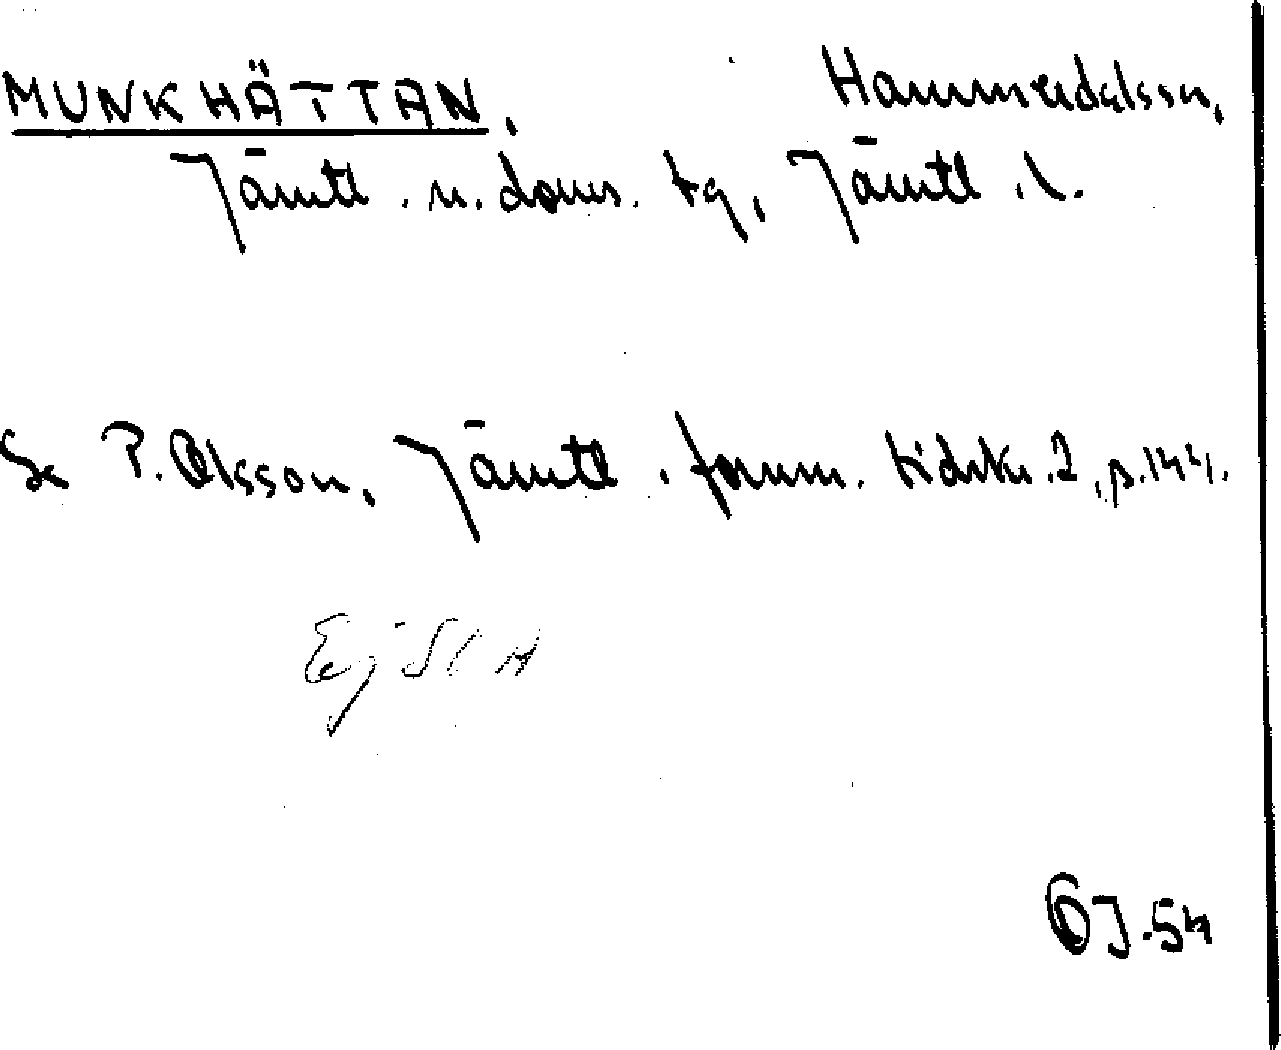 MUNKHÄTTAN, Hammerdalssn,
Jämtl. n. doms. tg, Jämtl. l.
Se P. Olsson, Jämtl. fornm. tidskr. 2, p. 144.
Ej SOA
ÖJ.54